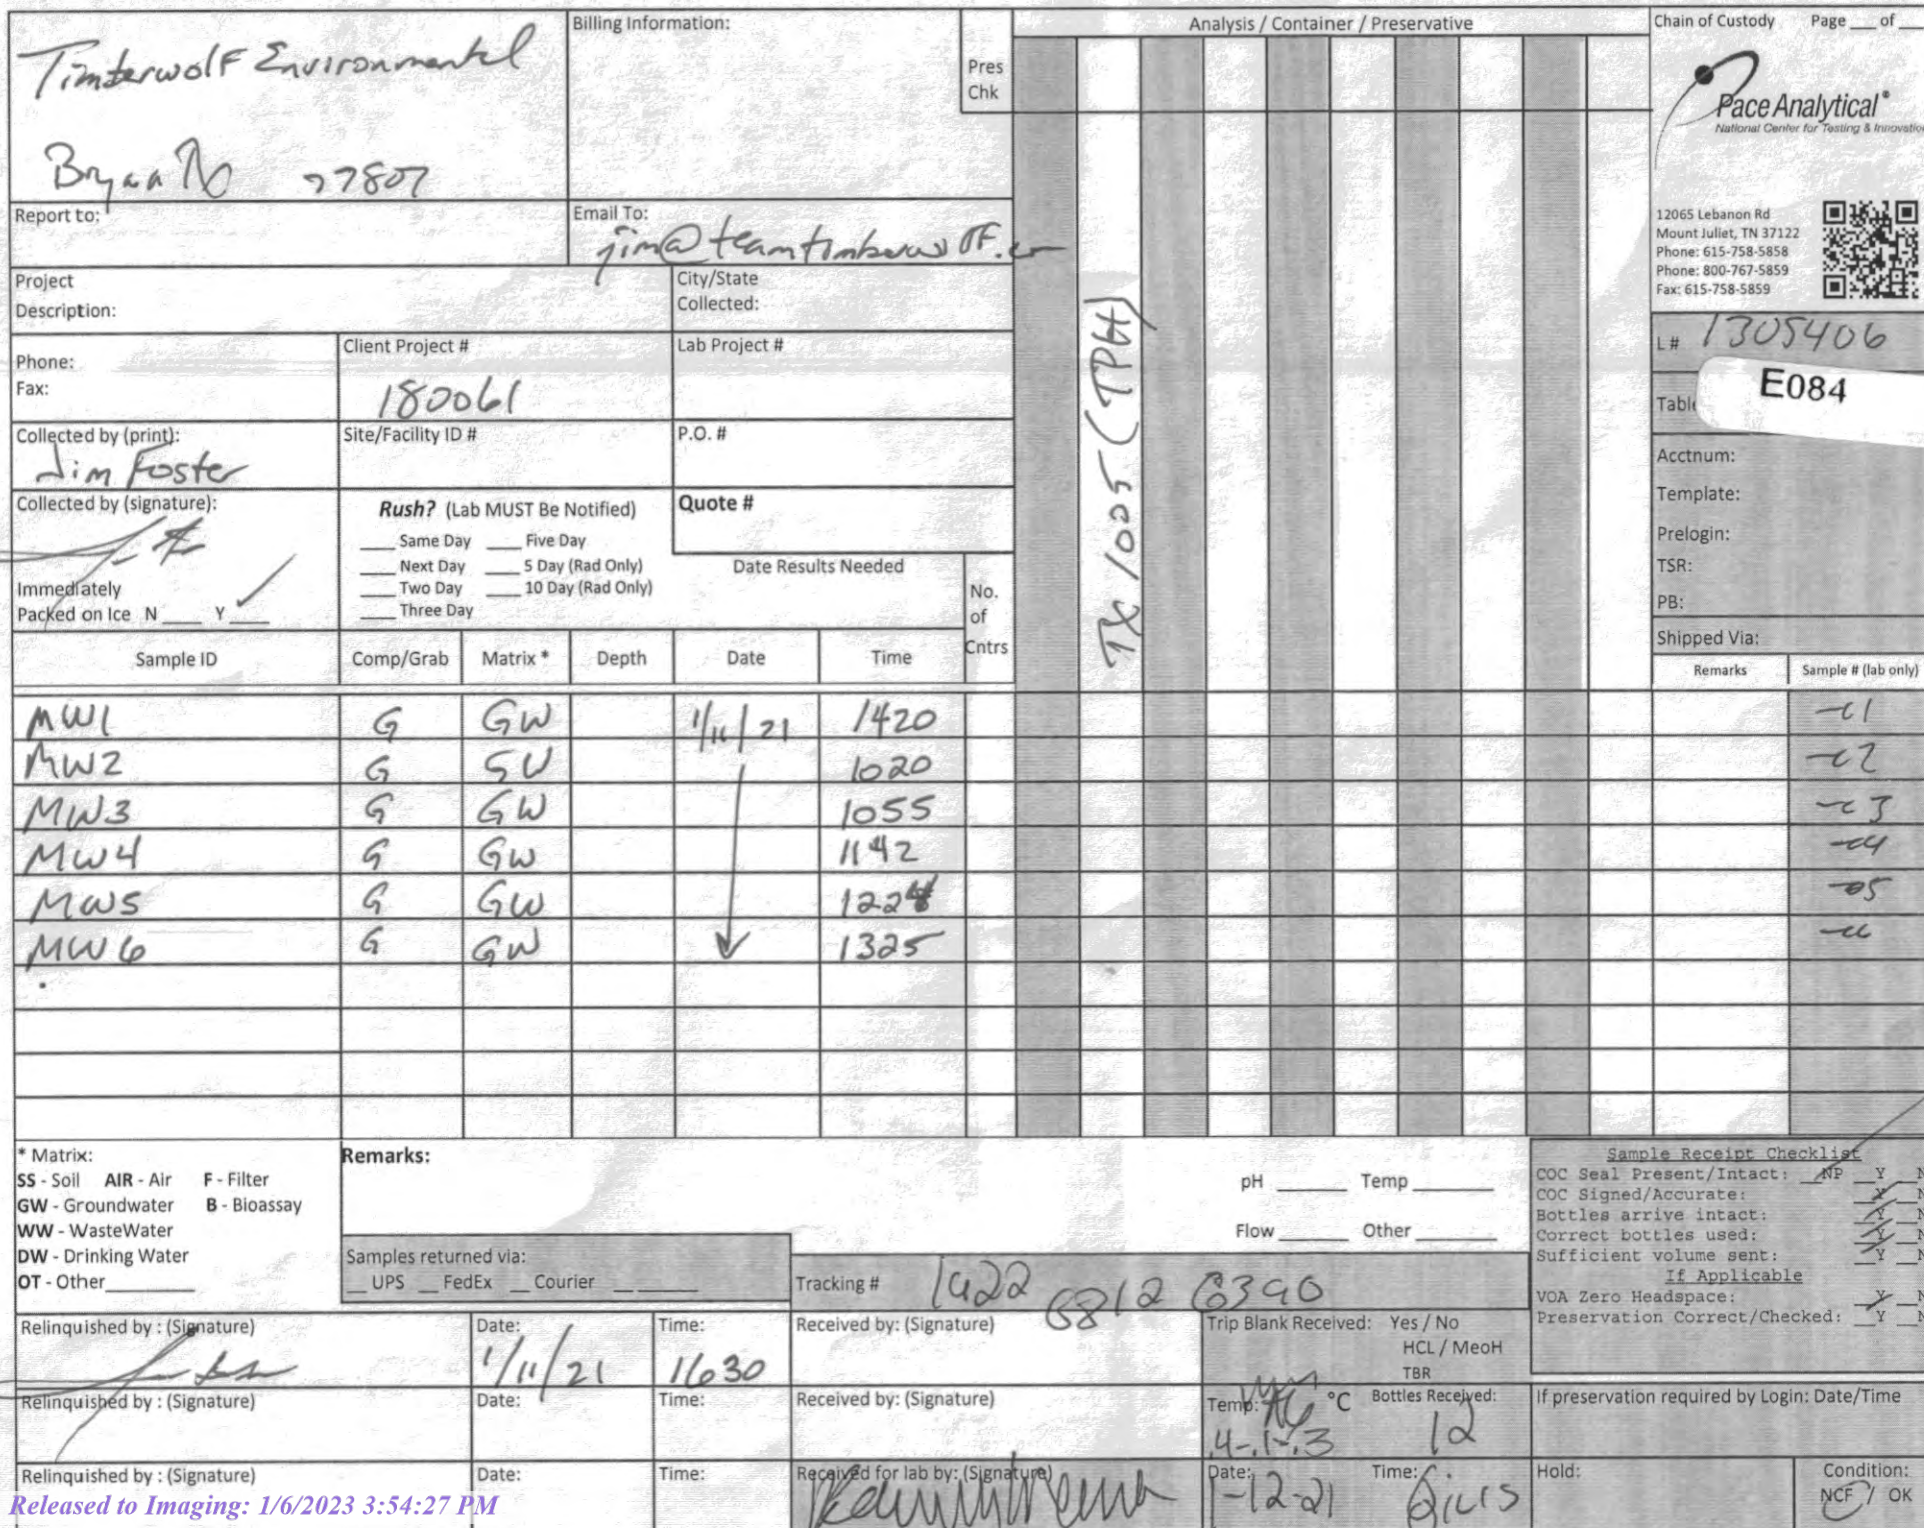 Timberwolf Environmental
Bryan TX 77807
Billing Information:
Pres
Chk
Analysis / Container / Preservative
Chain of Custody Page ___ of ___
Pace Analytical®
National Center for Testing & Innovation
12065 Lebanon Rd
Mount Juliet, TN 37122
Phone: 615-758-5858
Phone: 800-767-5859
Fax: 615-758-5859
Report to:
Email To:
jim@teamtimberwolf.
Project
Description:
City/State
Collected:
TX 1005 (TPH)
L# 1305406
E084
Phone:
Fax:
Client Project #
180061
Lab Project #
Collected by (print):
Jim Foster
Site/Facility ID #
P.O. #
Acctnum:
Template:
Prelogin:
TSR:
PB:
Shipped Via:
Collected by (signature):
Immediately
Packed on Ice N ___ Y ___ ✓
Rush? (Lab MUST Be Notified)
___ Same Day ___ Five Day
___ Next Day ___ 5 Day (Rad Only)
___ Two Day ___ 10 Day (Rad Only)
___ Three Day
Quote #
Date Results Needed
No.
of
Cntrs
Sample ID Comp/Grab Matrix * Depth Date Time Remarks Sample # (lab only)
MW1 G GW 1/11/21 1420 -01
MW2 G GW 1020 -02
MW3 G GW 1055 -03
MW4 G GW 1142 -04
MW5 G GW -05
MW6 G GW 1325 -06
* Matrix:
SS - Soil AIR - Air F - Filter
GW - Groundwater B - Bioassay
WW - WasteWater
DW - Drinking Water
OT - Other
Remarks:
pH ___ Temp ___
Flow ___ Other ___
Samples returned via:
__ UPS __ FedEx __ Courier ___
Tracking # 1422 6812 6390
Sample Receipt Checklist
COC Seal Present/Intact: __ NP __ Y __ N
COC Signed/Accurate: __ Y __ N
Bottles arrive intact: __ Y __ N
Correct bottles used: __ Y __ N
Sufficient volume sent: __ Y __ N
If Applicable
VOA Zero Headspace: __ Y __ N
Preservation Correct/Checked: __ Y __ N
Relinquished by : (Signature)
Date: 1/11/21
Time: 1630
Received by: (Signature)
Trip Blank Received: Yes / No
HCL / MeoH
TBR
Relinquished by : (Signature)
Date:
Time:
Received by: (Signature)
Temp: °C
.4-.1=.3
Bottles Received:
12
If preservation required by Login: Date/Time
Relinquished by : (Signature)
Date:
Time:
Received for lab by: (Signature)
Date: 1-12-21
Time:
Hold:
Condition:
NCF / OK
Released to Imaging: 1/6/2023 3:54:27 PM